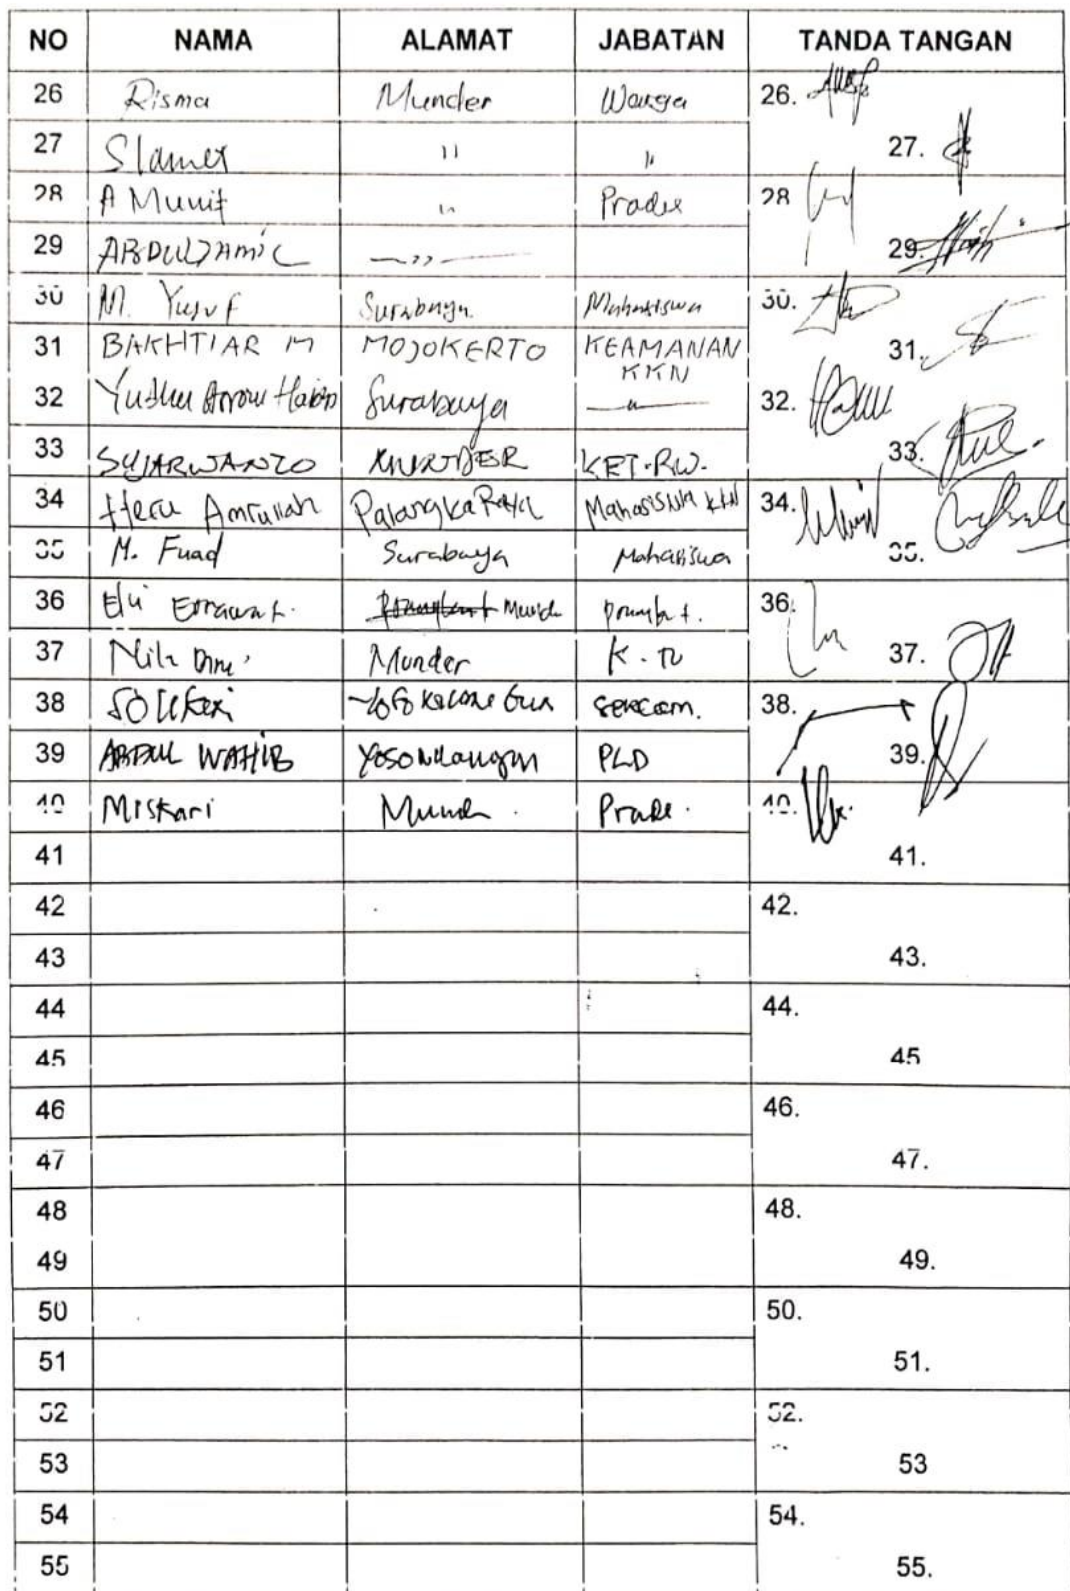 NO NAMA ALAMAT JABATAN TANDA TANGAN
26 Risma Munder Warga 26.
27 Slamet " " 27.
28 A Munif " Prades 28
29 ABDUL JAMIL —,,— 29.
30 M. Yusuf Surabaya Mahasiswa 30.
31 BAKHTIAR M MOJOKERTO KEAMANAN 31.
KKN
32 Surabaya —"— 32.
33 SUJARWANTO KET.RW. 33.
34 Heru Amrullah Palangka Raya Mahasiswa KKN 34.
35 M. Fuad Surabaya Mahasiswa 35.
36 36.
37 Munder K. TU 37.
38 38.
39 ABDUL WAHIB PLD 39.
40 Miskari 40.
41 41.
42 42.
43 43.
44 44.
45 45
46 46.
47 47.
48 48.
49 49.
50 50.
51 51.
52 52.
53 53
54 54.
55 55.